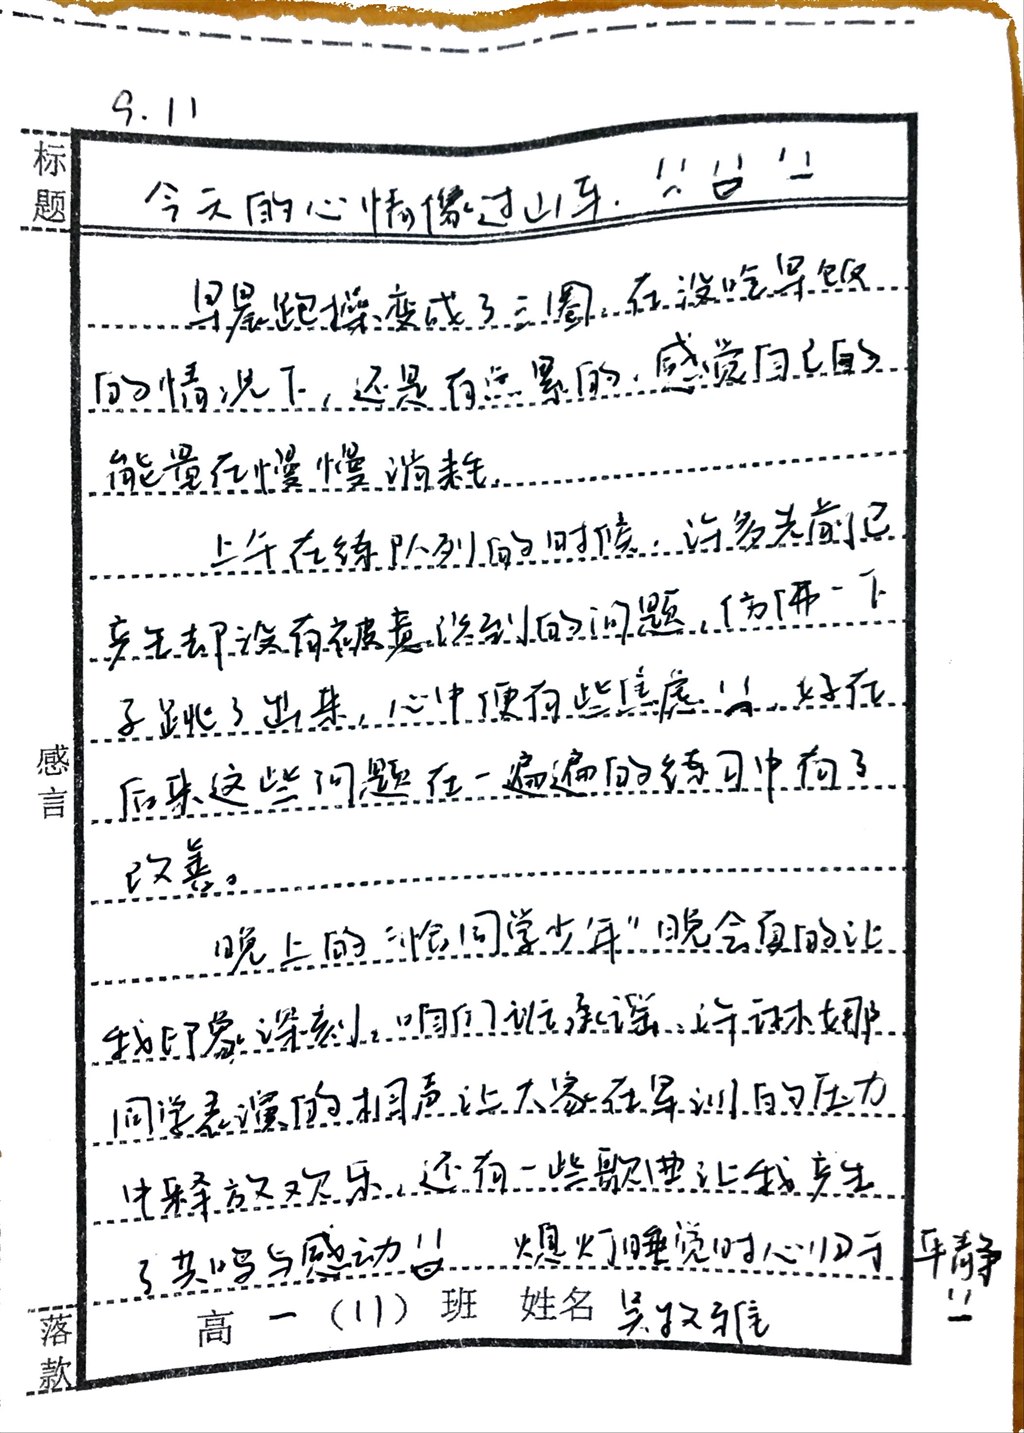 9.11
标题
今天的心情像过山车.
早晨跑操变成了三圈,在没吃早饭
的情况下,还是有点累的,感觉自己的
能量在慢慢消耗.
上午在练队列的时候,许多先前已
产生却没有被意识到的问题,仿佛一下
子跳了出来,心中便有些焦虑,好在
感言
后来这些问题在一遍遍的练习中有了
改善。
晚上的“恰同学少年”晚会真的让
我印象深刻,咱们班
同学表演的相声让大家在军训的压力
中释放欢乐,还有一些歌曲让我产生
了共鸣与感动 熄灯睡觉时心归于平静
落款
高一(11)班 姓名 吴